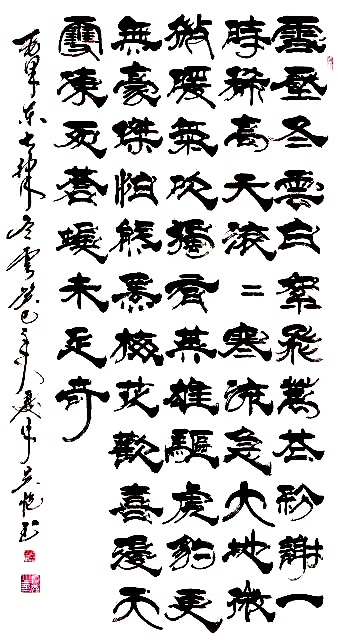 雪壓冬雲白絮飛萬花紛謝一
時稀高天滾〻寒流急大地微
微暖氣吹獨有英雄驅虎豹更
無豪傑怕熊羆梅花歡喜漫天
雪凍死蒼蠅未足奇
東七律冬雲癸巳